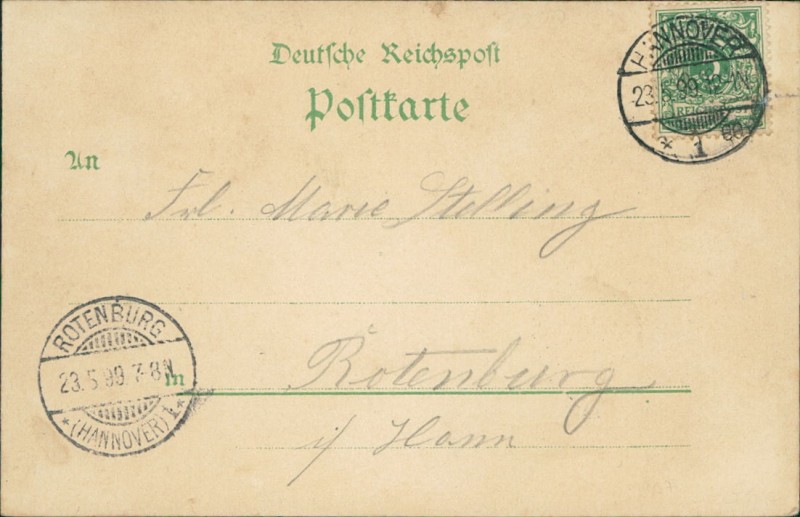 Deutsche Reichspost
Postkarte
HANNOVER
23.5.99.12-1N
* 1
REICHSPOST
An
Frl. Marie Stelling
ROTENBURG
23.5.99.7-8N.
* (HANNOVER) 1 *
in
Rotenburg
i/ Hann